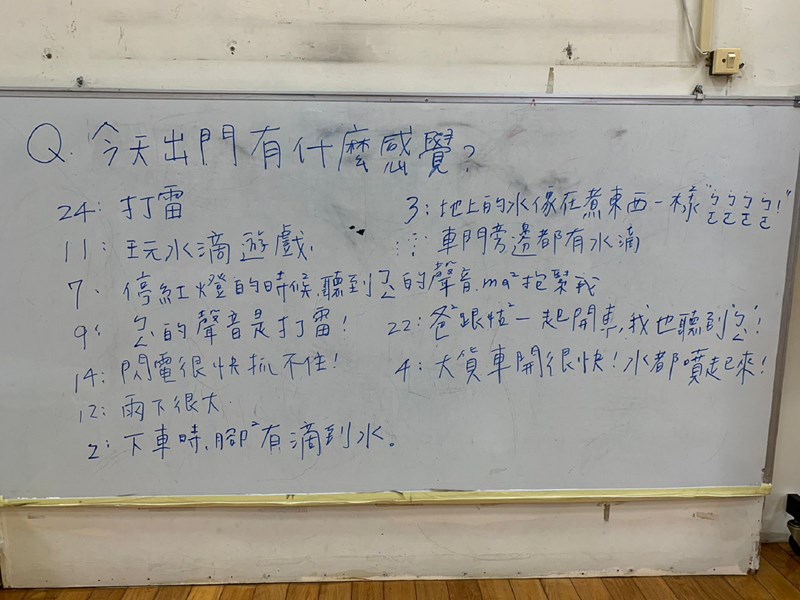 Q. 今天出門有什麼感覺?
24: 打雷
11: 玩水滴遊戲.
7. 停紅燈的時候,聽到ㄅㄥ的聲音,ma²抱緊我
9: ㄅㄥ的聲音是打雷!
14: 閃電很快抓不住!
12: 雨下很大.
2: 下車時,腳²有滴到水。
3: 地上的水像在煮東西一樣"ㄅㄛㄅㄛㄅㄛㄅㄛ!"
車門旁邊都有水滴
22: 爸²跟 一起開車,我也聽到"ㄅㄥ"!
4: 大貨車開很快!水都噴起來!